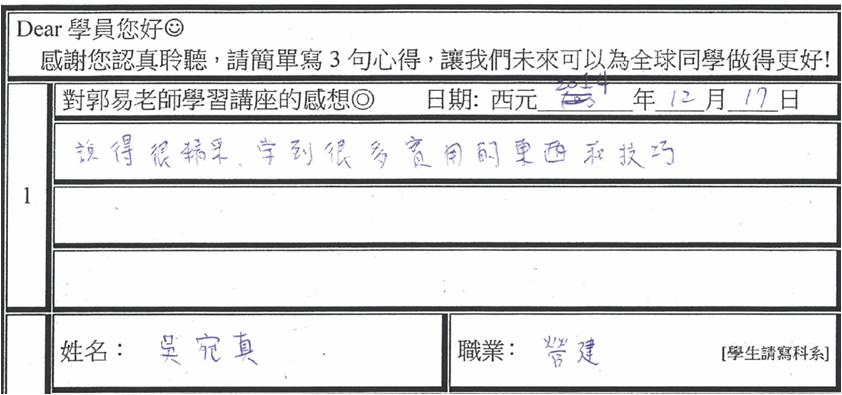 Dear 學員您好☺
感謝您認真聆聽，請簡單寫 3 句心得，讓我們未來可以為全球同學做得更好!
1
對郭易老師學習講座的感想◎ 日期: 西元 2014 年 12 月 17 日
說得很精采、学到很多實用的東西和技巧
姓名： 吳宛真 職業： 營建 [學生請寫科系]